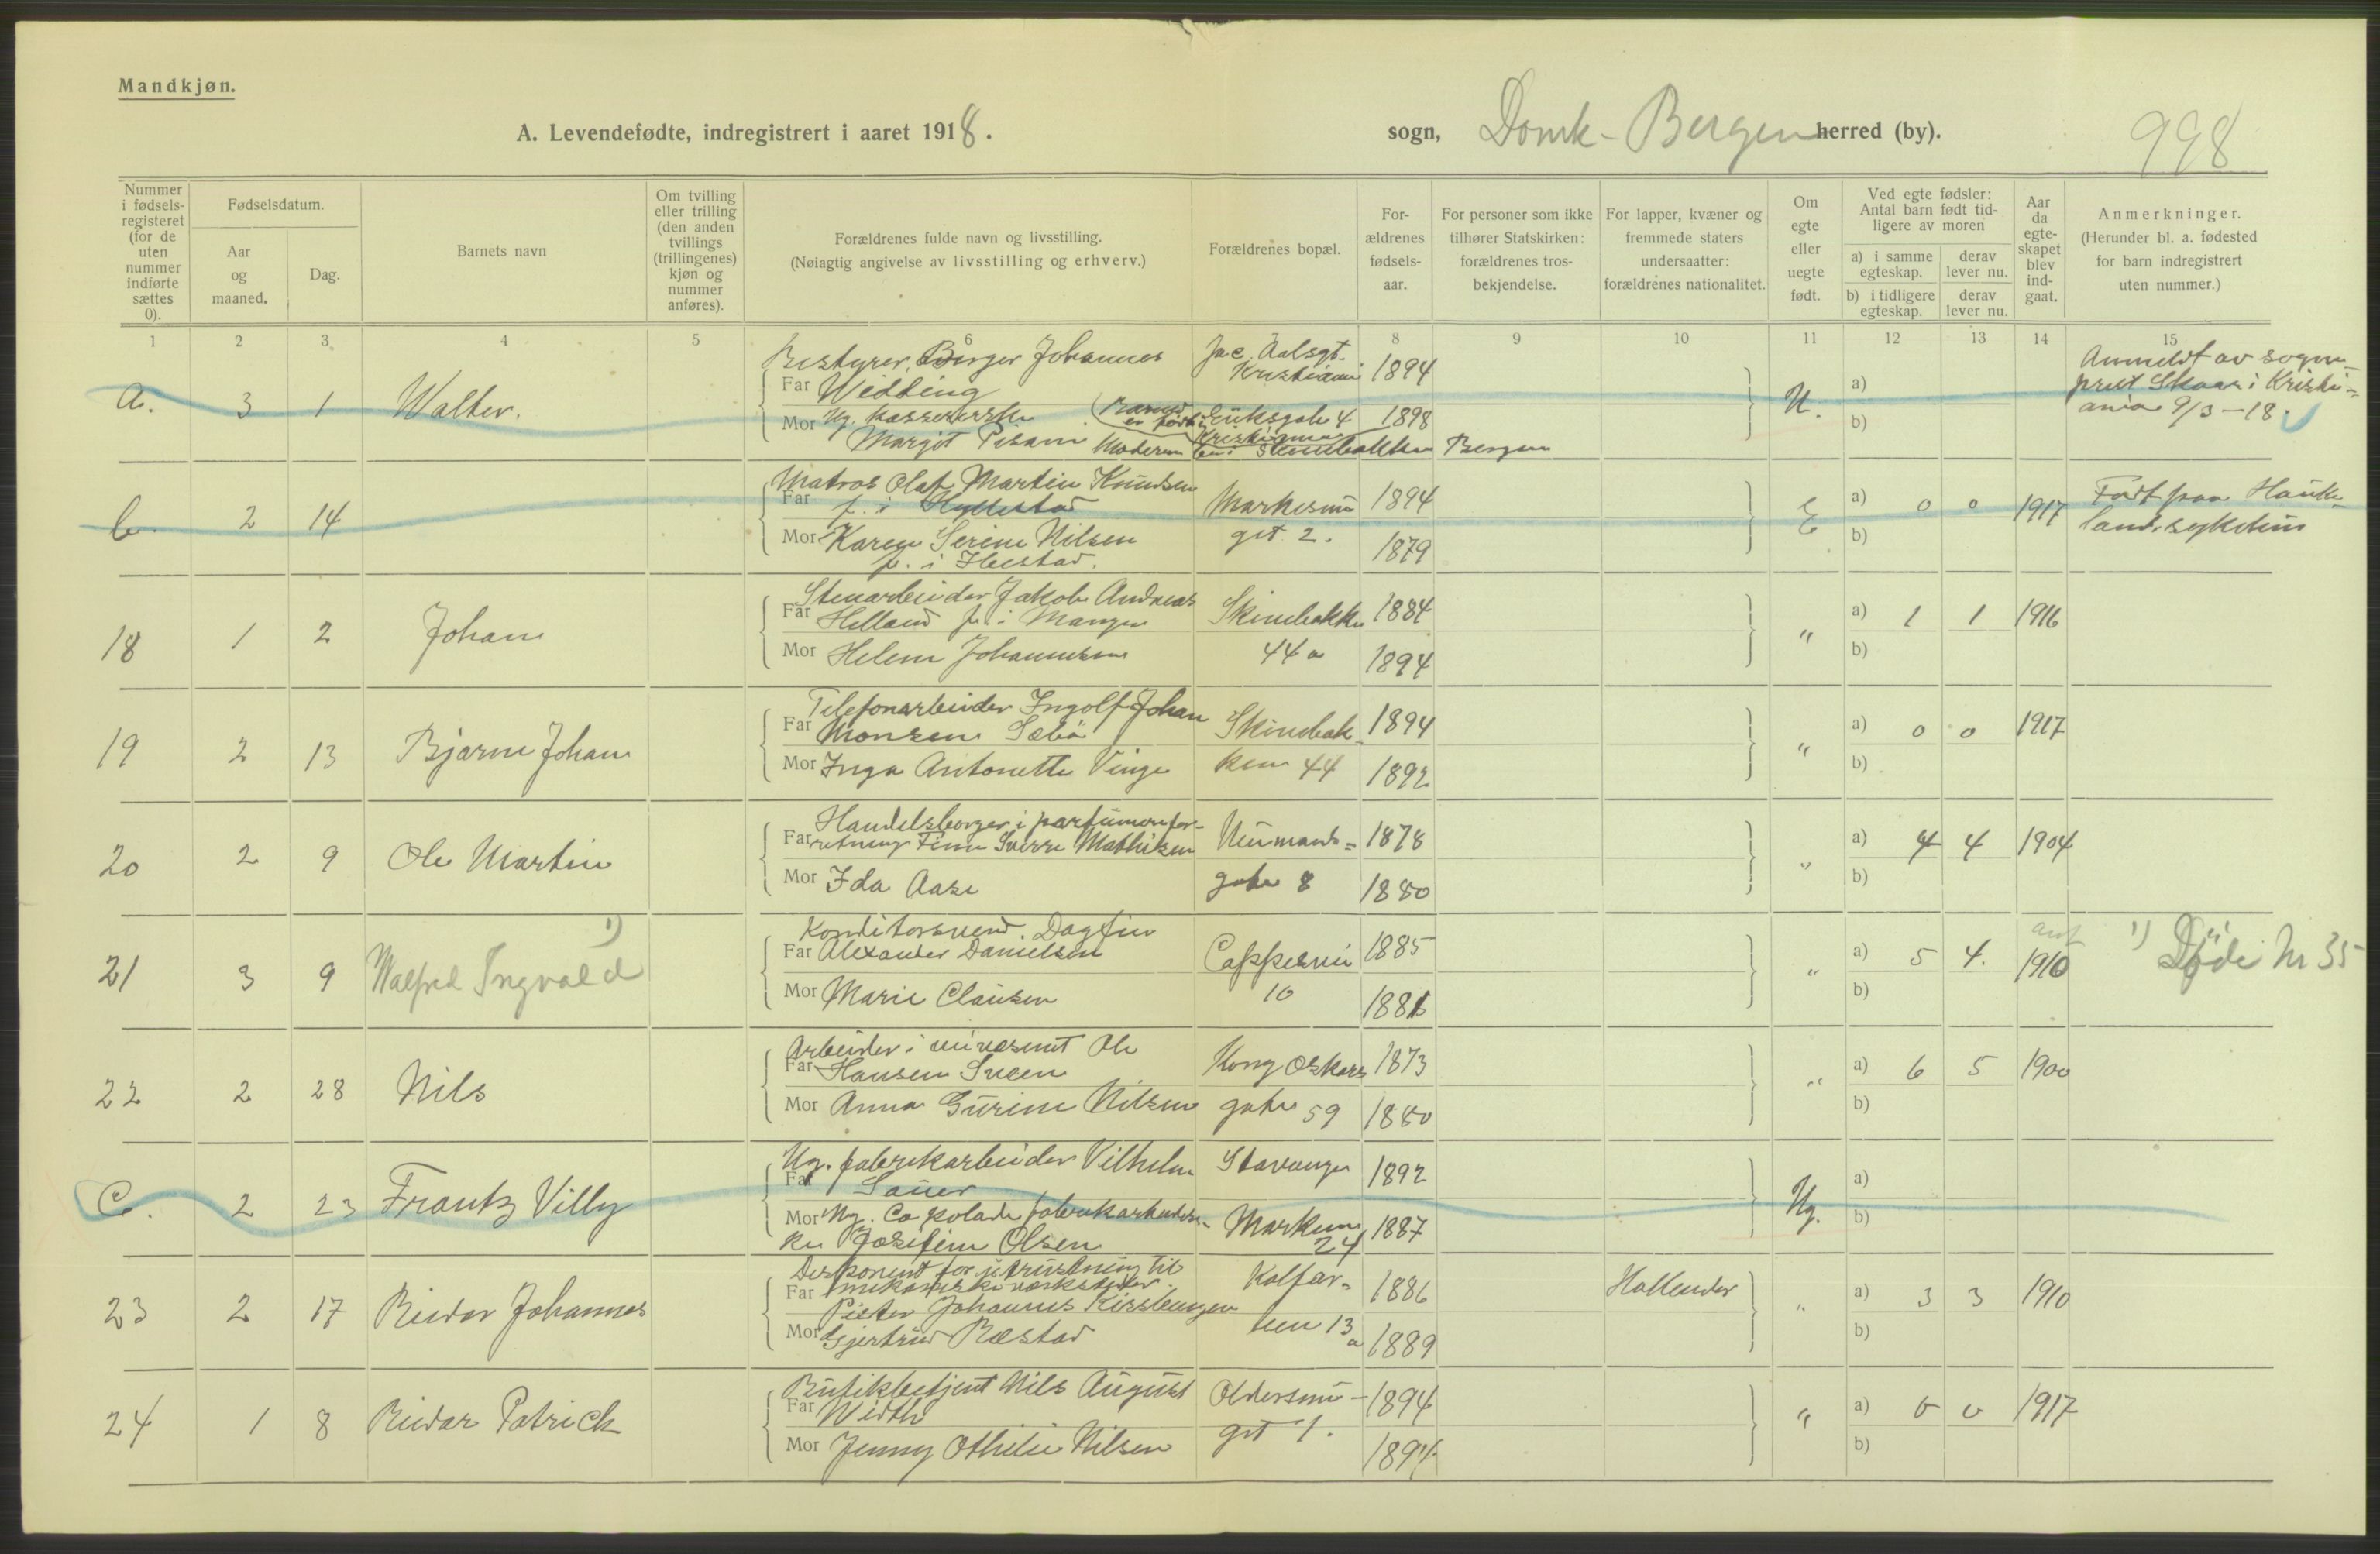 Mandkjøn.
A. Levendefødte, indregistrert i aaret 1918. sogn, Domk- Bergen herred (by). 998
Nummer i fødsels-registeret (for de uten nummer indførte sættes 0).
Fødselsdatum.
Aar og maaned.
Dag.
Barnets navn
Om tvilling eller trilling (den anden tvillings (trillingenes) kjøn og nummer anføres).
Forældrenes fulde navn og livsstilling.
(Nøiagtig angivelse av livsstilling og erhverv.)
Forældrenes bopæl.
For-ældrenes fødsels-aar.
For personer som ikke tilhører Statskirken: forældrenes tros-bekjendelse.
For lapper, kvæner og fremmede staters undersaatter: forældrenes nationalitet.
Om egte eller uegte født.
Ved egte fødsler: Antal barn født tid-ligere av moren
a) i samme egteskap. derav lever nu.
b) i tidligere egteskap. derav lever nu.
Aar da egte-skapet blev ind-gaat.
Anmerkninger.
(Herunder bl. a. fødested for barn indregistrert uten nummer.)
1 2 3 4 5 6 8 9 10 11 12 13 14 15
Bestyrer, Birger Johannes Jac. Aalsgt. Anmeldt av sogne-
Far Wedding Kristiania 1894 a) prest Skaar i Kristi-
a. 3 1 Walter. U. ania 9/3-18.
Mor Ug. kassererske (Barnet er født i gate 4 1898 b)
Margit Kristiania
Moderen bor Skivebakken Bergen
Matros Olaf Martin Knudsen
Far f. i Hyllestad Markesmu 1894 a) 0 0 Født paa Hauke-
b. 2 14 E 1917 landssykehus
Mor Karen Serine Nilsen get 2. 1879 b)
f. i
Stenarbeider Jakob Andreas
Far Helland f. i Manger Skivebakken 1884 a) 1 1 1916
18 1 2 Johan "
Mor Helene Johannesen 44 a 1894 b)
Telefonarbeider Ingolf Johan
Far Monsen Sæbö Skivebak- 1894 a) 0 0 1917
19 2 13 Bjarne Johan "
Mor Inga Antonette Vinje ken 44 1892 b)
Handelsborger i parfumerifor-
Far retning Finn Sverre Mathisen Neumands= 1878 a) 4 4 1904
20 2 9 Ole Martin "
Mor Ida Aase gate 8 1880 b)
Konditorsvend. Dagfin
Far Alexander Danielsen Cappesvei 1885 a) 5 4. 1910 1) Døde Nr 35
21 3 9 Walfred Ingvald 1) "
Mor Marie Clausen 10 1881 b)
Arbeider i Ole
Far Hansen Sveen Kong Oskars 1873 a) 6 5 1900
22 2 28 Nils "
Mor Anna Gurine Nilsen gate 59 1880 b)
Ug. fabrikarbeider Vilhelm Stavanger 1892 a)
Far Sauer
C. 2 23 Frantz Villy Ug.
Mor Ug. fabrikarbeiders- Marken 1887 b)
ke Josefine Olsen 24
Disponent for jernutrustning til
Far mekaniske verksteder. Kalfar- 1886 Hollender a) 3 3 1910
Pieter Johannes
23 2 17 Reidar Johannes "
Mor Gjertrud Ræstad veien 13 a 1889 b)
Butikbetjent Nils August Oldersmu-
Far Width 1894 a) 0 0 1917
24 1 8 Reidar Patrick "
Mor Jenny Othilie Nilsen get 1. 1894 b)